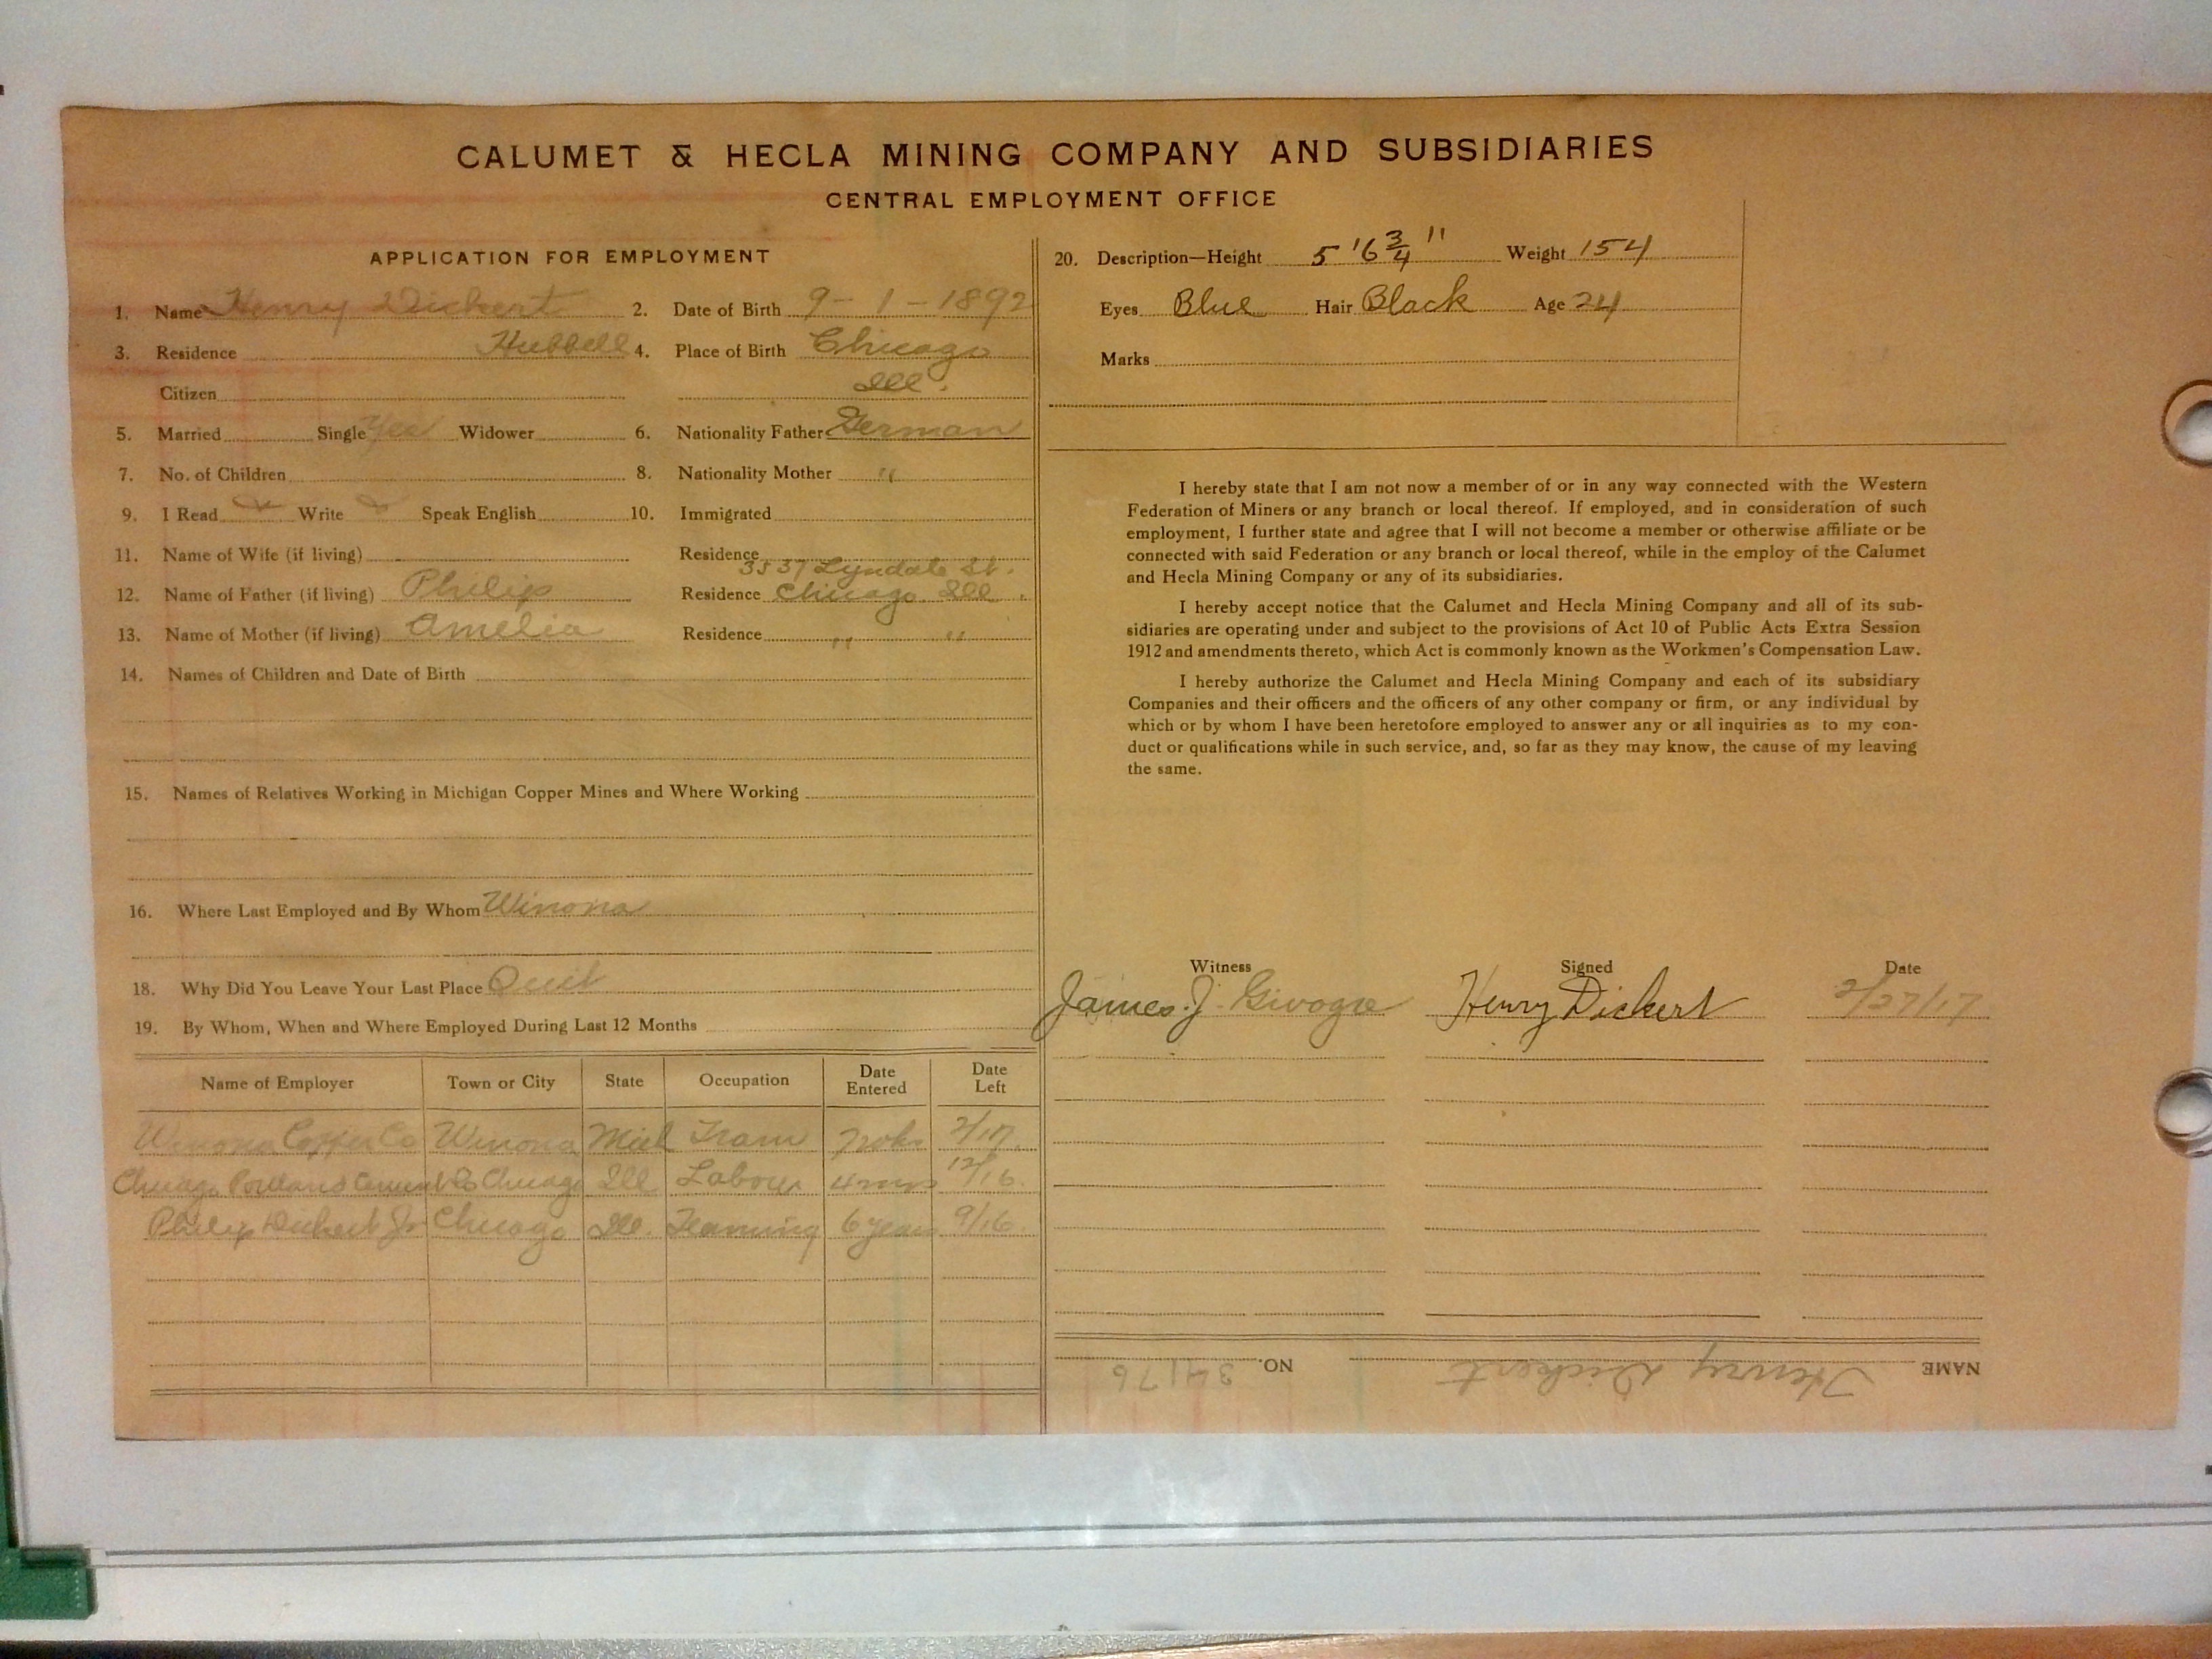 CALUMET & HECLA MINING COMPANY AND SUBSIDIARIES
CENTRAL EMPLOYMENT OFFICE
APPLICATION FOR EMPLOYMENT
1. Name Henry Dickert 2. Date of Birth 9-1-1892
3. Residence Hubbell 4. Place of Birth Chicago
Citizen Ill.
5. Married Single Yes Widower 6. Nationality Father German
7. No. of Children 8. Nationality Mother "
9. I Read Write Speak English 10. Immigrated
11. Name of Wife (if living) Residence
3537 Lyndale St.
12. Name of Father (if living) Philip Residence Chicago Ill.
13. Name of Mother (if living) Amelia Residence " "
14. Names of Children and Date of Birth
15. Names of Relatives Working in Michigan Copper Mines and Where Working
16. Where Last Employed and By Whom Winona
18. Why Did You Leave Your Last Place Quit
19. By Whom, When and Where Employed During Last 12 Months
Name of Employer Town or City State Occupation Date Entered Date Left
Winona Copper Co Winona Mich Tram 2/17.
Chicago Portland Cement Co Chicago Ill Labour 4 mos 12/16.
Philip Dickert Jr Chicago Ill. Teaming 6 years 9/16.
20. Description—Height 5'6 3/4" Weight 154
Eyes Blue Hair Black Age 24
Marks
I hereby state that I am not now a member of or in any way connected with the Western
Federation of Miners or any branch or local thereof. If employed, and in consideration of such
employment, I further state and agree that I will not become a member or otherwise affiliate or be
connected with said Federation or any branch or local thereof, while in the employ of the Calumet
and Hecla Mining Company or any of its subsidiaries.
I hereby accept notice that the Calumet and Hecla Mining Company and all of its sub-
sidiaries are operating under and subject to the provisions of Act 10 of Public Acts Extra Session
1912 and amendments thereto, which Act is commonly known as the Workmen's Compensation Law.
I hereby authorize the Calumet and Hecla Mining Company and each of its subsidiary
Companies and their officers and the officers of any other company or firm, or any individual by
which or by whom I have been heretofore employed to answer any or all inquiries as to my con-
duct or qualifications while in such service, and, so far as they may know, the cause of my leaving
the same.
Witness Signed Date
James J. Henry Dickert 2/27/17
NAME Henry Dickert NO. 34176